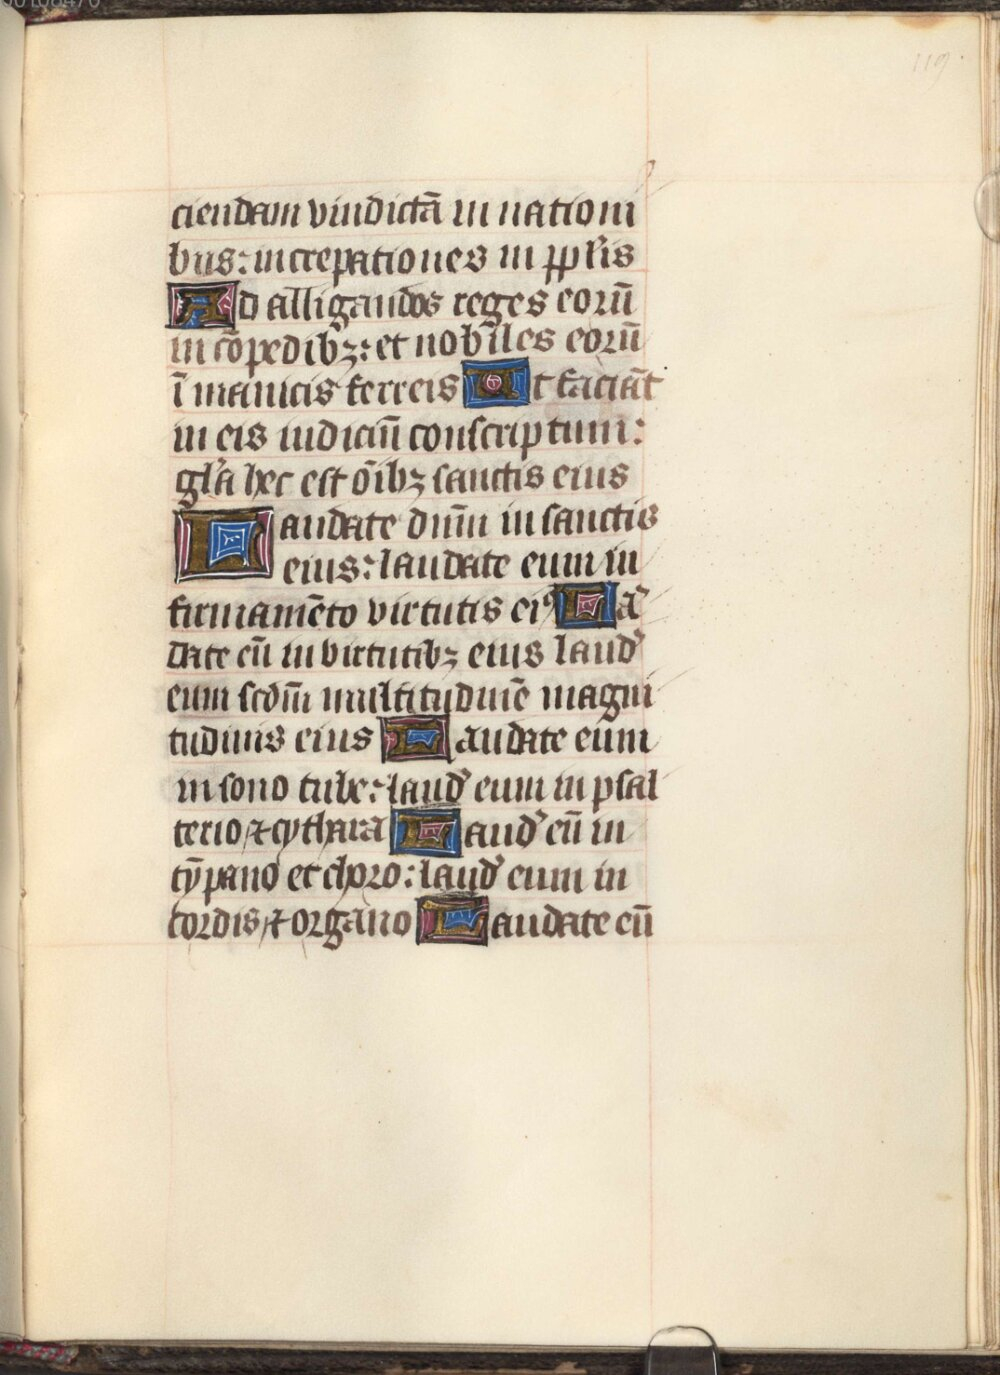 00108470
119
ciendam vindictā in nationi
bus: increpationes in pplis
Ad alligandos reges eorū
in cōpedibꝫ: et nobiles eorū
ī manicis ferreis Ut faciāt
in eis iudiciū conscriptum:
glā hec est oībꝫ sanctis eius
Laudate dnm in sanctis
eius: laudate eum in
firmamēto virtutis eiꝰ Lau
date eū in virtutibꝫ eius laud
eum scdm multitudinē magni
tudinis eius Laudate eum
in sono tube: laud eum in psal
terio ⁊ cythara Laud eū in
tȳpano et choro: laud eum in
cordis ⁊ organo Laudate eū